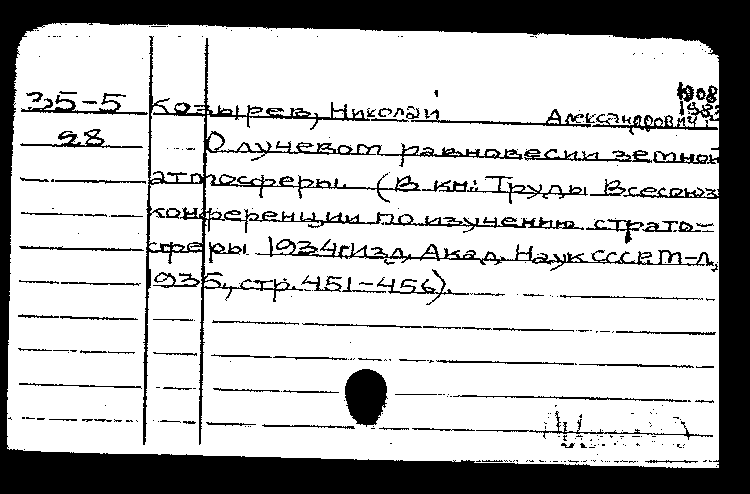 1908
1983
35-5 Козырев, Николай Александрович.
98 О лучевом равновесии земной
атмосферы. (В кн: Труды Всесоюз
конференции по изучению страто-
сферы 1934г. Изд. Акад. Наук СССР. М-Л,
1935, стр. 451-456).